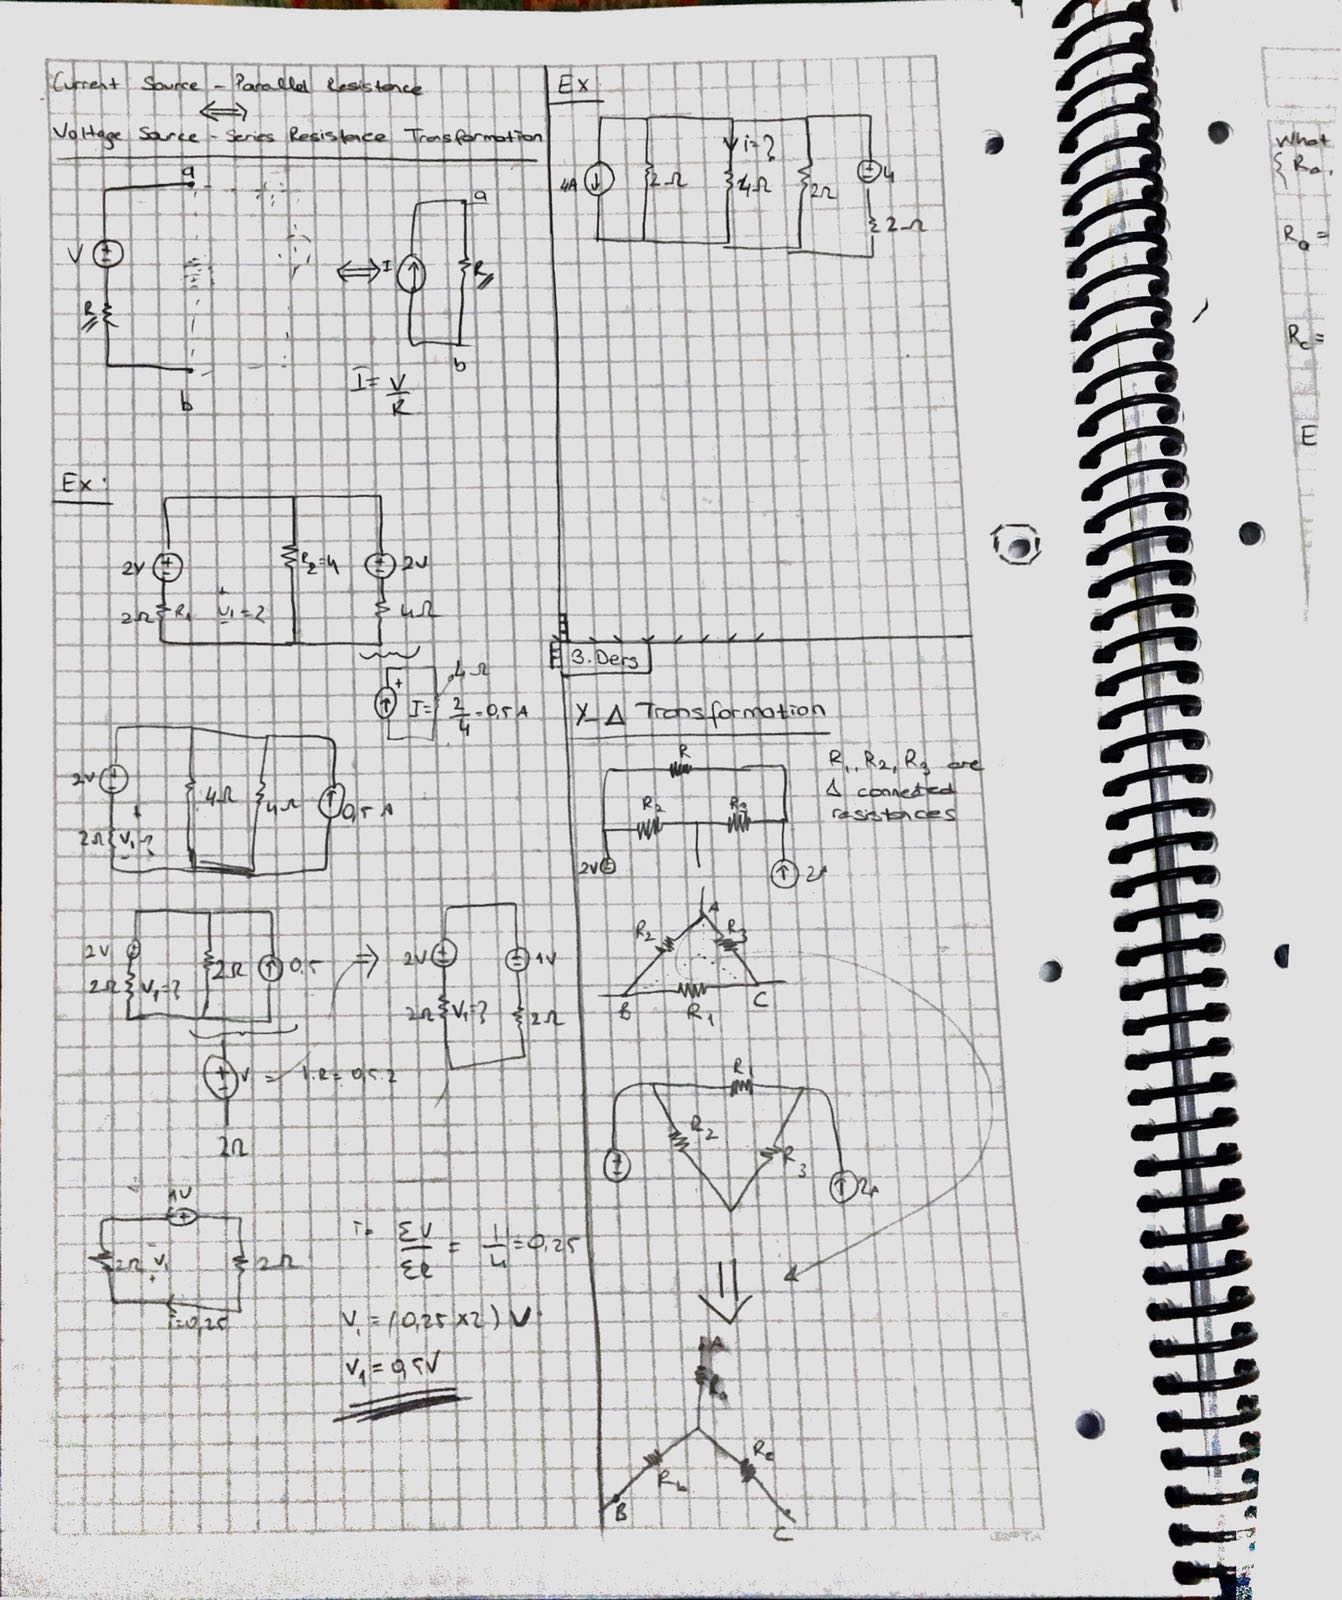 Current Source - Parallel Resistence
⟺
Voltage Source - Series Resistence Transformation
a
V
R
b
⟺
I
a
R
b
I = V/R
Ex:
2V
2Ω R1
+
V1=?
-
R2=4
2V
4Ω
4Ω
+
I= 2/4 = 0,5 A
2V
2Ω
+
V1=?
-
4Ω
4Ω
0,5 A
2V
2Ω V1=?
2Ω
0,5
⇒
2V
2Ω V1=?
1V
2Ω
V = I.R = 0,5.2
2Ω
1V
2Ω
-
V1
+
2Ω
i=0,25
i= ΣV/ΣR = 1/4 = 0,25
V1 = (0,25x2) V
V1 = 0,5V
Ex:
4A
2Ω
i=?
4Ω
2Ω
4
2Ω
3. Ders
Y-Δ Transformation
R
R2
R3
2V
2A
R1, R2, R3 are
Δ connected
resistences
A
R2
R3
B
R1
C
R1
R2
R3
2A
⇓
A
Ra
Rb
Rc
B
C
What
{ Ra,
Ra =
Rc =
E